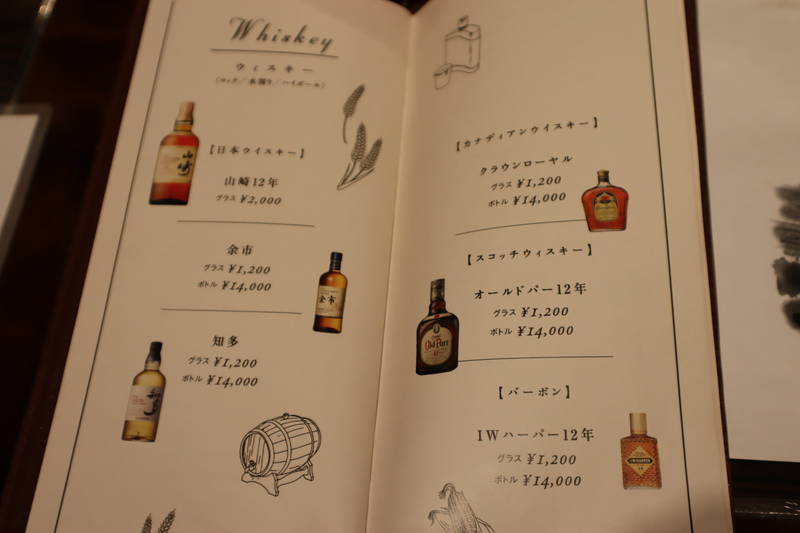 Whiskey
ウィスキー
(ロック/水割り/ハイボール)
【日本ウイスキー】
山崎12年
グラス ¥2,000
余市
グラス ¥1,200
ボトル ¥14,000
知多
グラス ¥1,200
ボトル ¥14,000
【カナディアンウイスキー】
クラウンローヤル
グラス ¥1,200
ボトル ¥14,000
【スコッチウィスキー】
オールドパー12年
グラス ¥1,200
ボトル ¥14,000
【バーボン】
IWハーパー12年
グラス ¥1,200
ボトル ¥14,000
山崎
余市
知多
Old Parr
I.W.HARPER